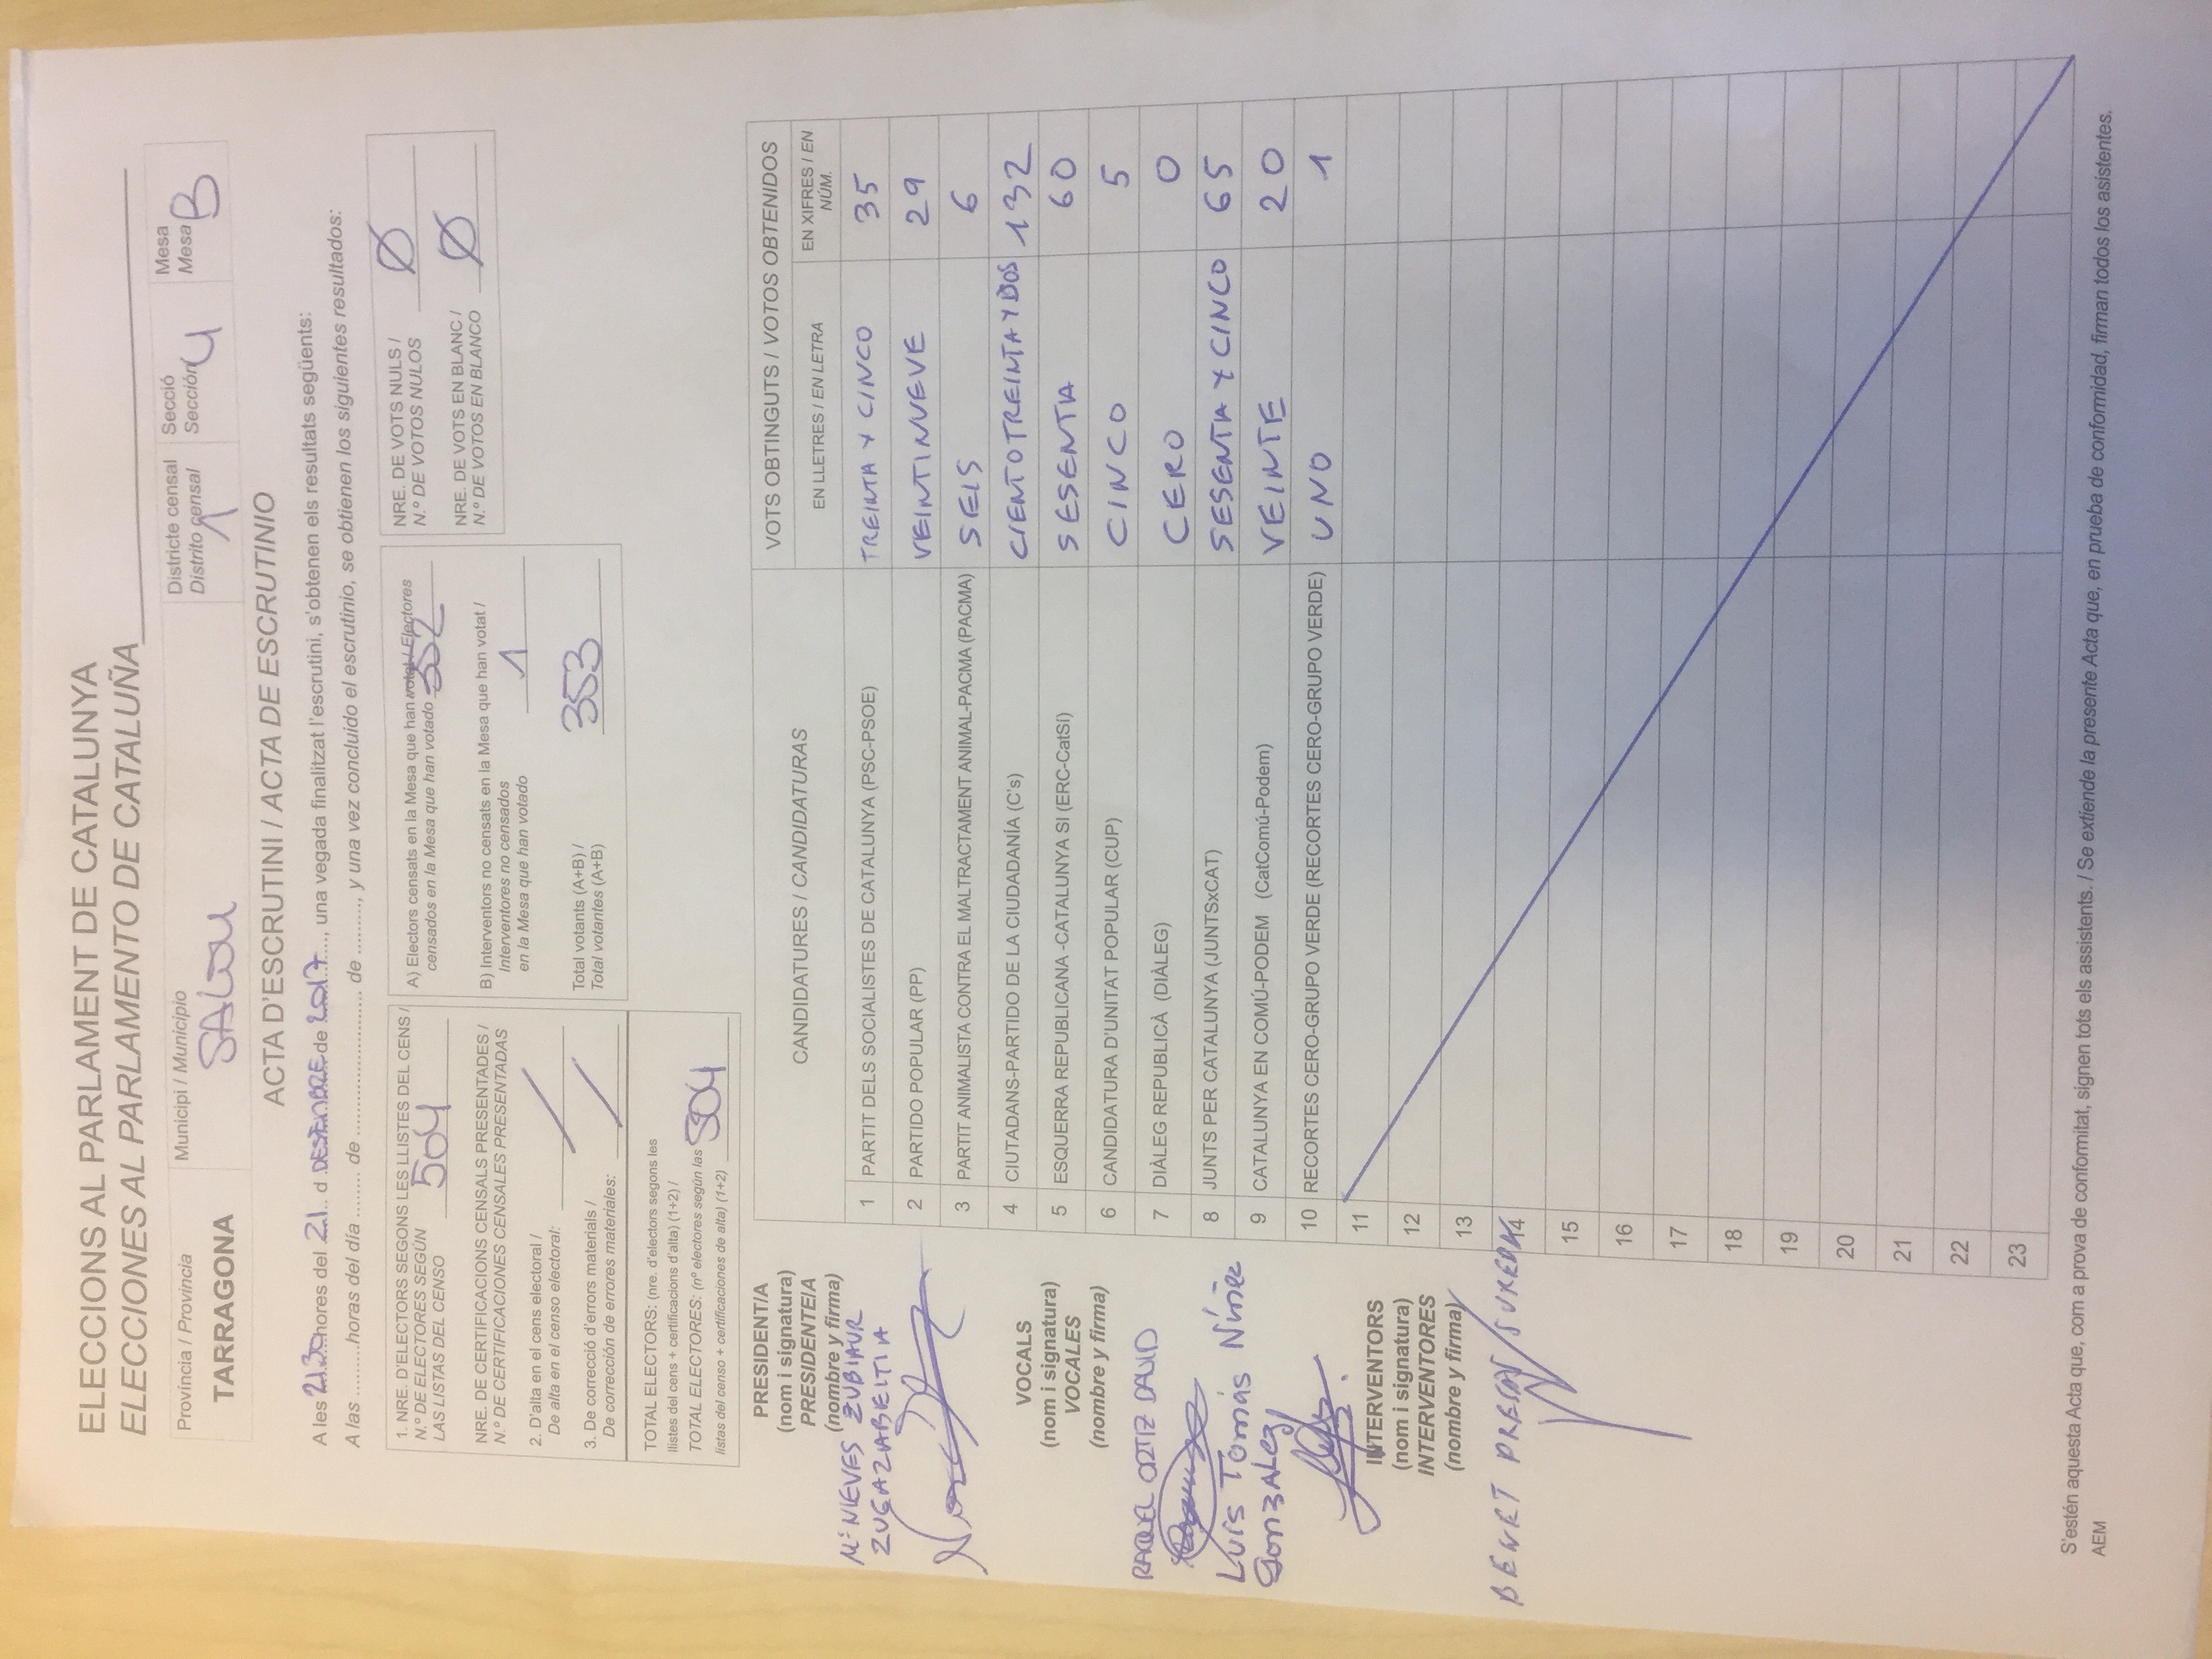 ELECCIONS AL PARLAMENT DE CATALUNYA
ELECCIONES AL PARLAMENTO DE CATALUÑA
Província / Provincia
TARRAGONA
Municipi / Municipio
SALOU
Districte censal
Distrito censal
1
Secció
Sección 4
Mesa
Mesa B
ACTA D'ESCRUTINI / ACTA DE ESCRUTINIO
A les 2130 hores del 21 d DESEMBRE de 2017, una vegada finalitzat l'escrutini, s'obtenen els resultats següents:
A las .........horas del día ........ de ........................ de ........., y una vez concluido el escrutinio, se obtienen los siguientes resultados:
1. NRE. D'ELECTORS SEGONS LES LLISTES DEL CENS /
N.º DE ELECTORES SEGÚN
LAS LISTAS DEL CENSO 504
NRE. DE CERTIFICACIONS CENSALS PRESENTADES /
N.º DE CERTIFICACIONES CENSALES PRESENTADAS
2. D'alta en el cens electoral /
De alta en el censo electoral: /
3. De correcció d'errors materials /
De corrección de errores materiales: /
TOTAL ELECTORS: (nre. d'electors segons les
llistes del cens + certificacions d'alta) (1+2) /
TOTAL ELECTORES: (nº electores según las
listas del censo + certificaciones de alta) (1+2) 504
A) Electors censats en la Mesa que han votat / Electores
censados en la Mesa que han votado 352
B) Interventors no censats en la Mesa que han votat /
Interventores no censados
en la Mesa que han votado 1
Total votants (A+B) /
Total votantes (A+B) 353
NRE. DE VOTS NULS /
N.º DE VOTOS NULOS Ø
NRE. DE VOTS EN BLANC /
N.º DE VOTOS EN BLANCO Ø
PRESIDENT/A
(nom i signatura)
PRESIDENTE/A
(nombre y firma)
Mª NIEVES ZUBIAUR
ZUGAZABEITIA
VOCALS
(nom i signatura)
VOCALES
(nombre y firma)
RAQUEL ORTIZ DAVID
Luis Tomás Núñez
GonzALez
INTERVENTORS
(nom i signatura)
INTERVENTORES
(nombre y firma)
BENET PRESAS SUREDA
CANDIDATURES / CANDIDATURAS
VOTS OBTINGUTS / VOTOS OBTENIDOS
EN LLETRES / EN LETRA
EN XIFRES / EN
NÚM.
1 PARTIT DELS SOCIALISTES DE CATALUNYA (PSC-PSOE) TREINTA Y CINCO 35
2 PARTIDO POPULAR (PP) VEINTINUEVE 29
3 PARTIT ANIMALISTA CONTRA EL MALTRACTAMENT ANIMAL-PACMA (PACMA) SEIS 6
4 CIUTADANS-PARTIDO DE LA CIUDADANÍA (C's) CIENTO TREINTA Y DOS 132
5 ESQUERRA REPUBLICANA -CATALUNYA SI (ERC-CatSí) SESENTA 60
6 CANDIDATURA D'UNITAT POPULAR (CUP) CINCO 5
7 DIÀLEG REPUBLICÀ (DIÀLEG) CERO 0
8 JUNTS PER CATALUNYA (JUNTSxCAT) SESENTA Y CINCO 65
9 CATALUNYA EN COMÚ-PODEM (CatComú-Podem) VEINTE 20
10 RECORTES CERO-GRUPO VERDE (RECORTES CERO-GRUPO VERDE) UNO 1
11
12
13
14
15
16
17
18
19
20
21
22
23
S'estén aquesta Acta que, com a prova de conformitat, signen tots els assistents. / Se extiende la presente Acta que, en prueba de conformidad, firman todos los asistentes.
AEM